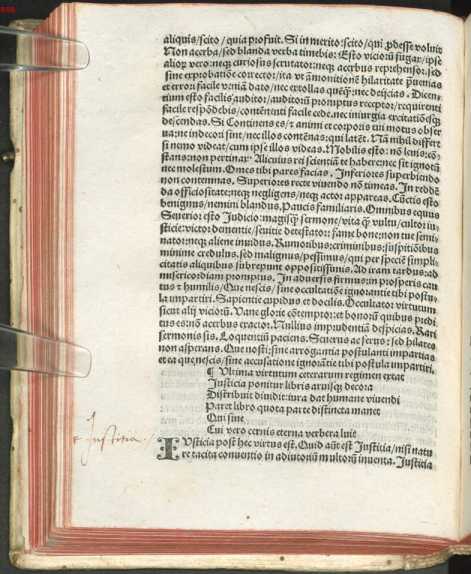 aliquis/scito/quia profuit. Si in merito:scito/qui pdesse voluit
Non acerba/sed blanda verba timebis: Esto vicioru fugar/ipse
alior vero:neqȝ curiosus scrutator:neqȝ acerbus reprehensor:sed
sine exprobatiōe corrector/ita vt āmonitionē hilaritate pueniās
et errori facile veniā dato/nec extollas queqȝ:nec deijcias. Dicen-
tium esto facilis auditor/auditorū promptus receptor/requirenti
facile respōdebis/contēnenti facile cede.nec iniurgia
descendas. Si Continens es/⁊ animi et corporis tui motus obser
ua:ne indecori sint/nec illos contēnas:qui latēt. Nā nihil differt
si nemo videat/cum ipse illos videas. Mobilis esto: nō leuis:cō-
stans:non pertinax. Alicuius rei scientiā te habere:nec sit ignotū
nec molestum. Omēs tibi pares facias. Inferiores superbiendo
non contemnas. Superiores recte viuendo nō timeas. In reddē
da officiositate:neqȝ negligens/neqȝ actor appareas. Cūctis esto
benignus/nemini blandus. Paucis familiaris. Omnibus equus
Seuerior esto Judicio:magisqȝ sermone/vita qȝ vultu/cultor iu-
sticie:victor dementie/seuitie detestator: fame bone:non tue semi-
nator:neqȝ aliene inuidus. Rumoribus:criminibus:suspitiōibus
minime credulus.sed malignus/pessimus/qui per speciē simpli-
citatis aliquibus subrepunt oppositissimus. Ad iram tardus:ad
misericordiam promptus. In aduersis firmus:in prosperis cau
tus ⁊ humilis/Que nescis/sine occultatiōe ignorantie tibi postu-
la impartiri. Sapientie cupidus et docilis. Occultator virtutum
sicut alij viciorū. Vane glorie cōtemptor:et bonorū quibus predi
tus es:nō acerbus exactor. Nullius imprudentiā despicias. Rari
sermonis sis. Loquentiū paciens. Seuerus ac seruo:sed hilares
non asperans. Que nosti:sine arrogantia postulanti impartias
et ea que nescis/sine accusatione ignorātie tibi postula impartiri.
¶ Vltima virtutum ceterarum regimen extat
Justicia ponitur libris aruisqȝ decora
Distribuit diuidit:iura dat humane viuendi
Paret libro quota parte distincta manet
Qui sine
Cui vero cernis eterna verbera luit
IVsticia post hec virtus est. Quid aūt est Justicia/nisi natu
re tacita conuentio in adiutoriū multorū inuenta. Justicia
Justitia